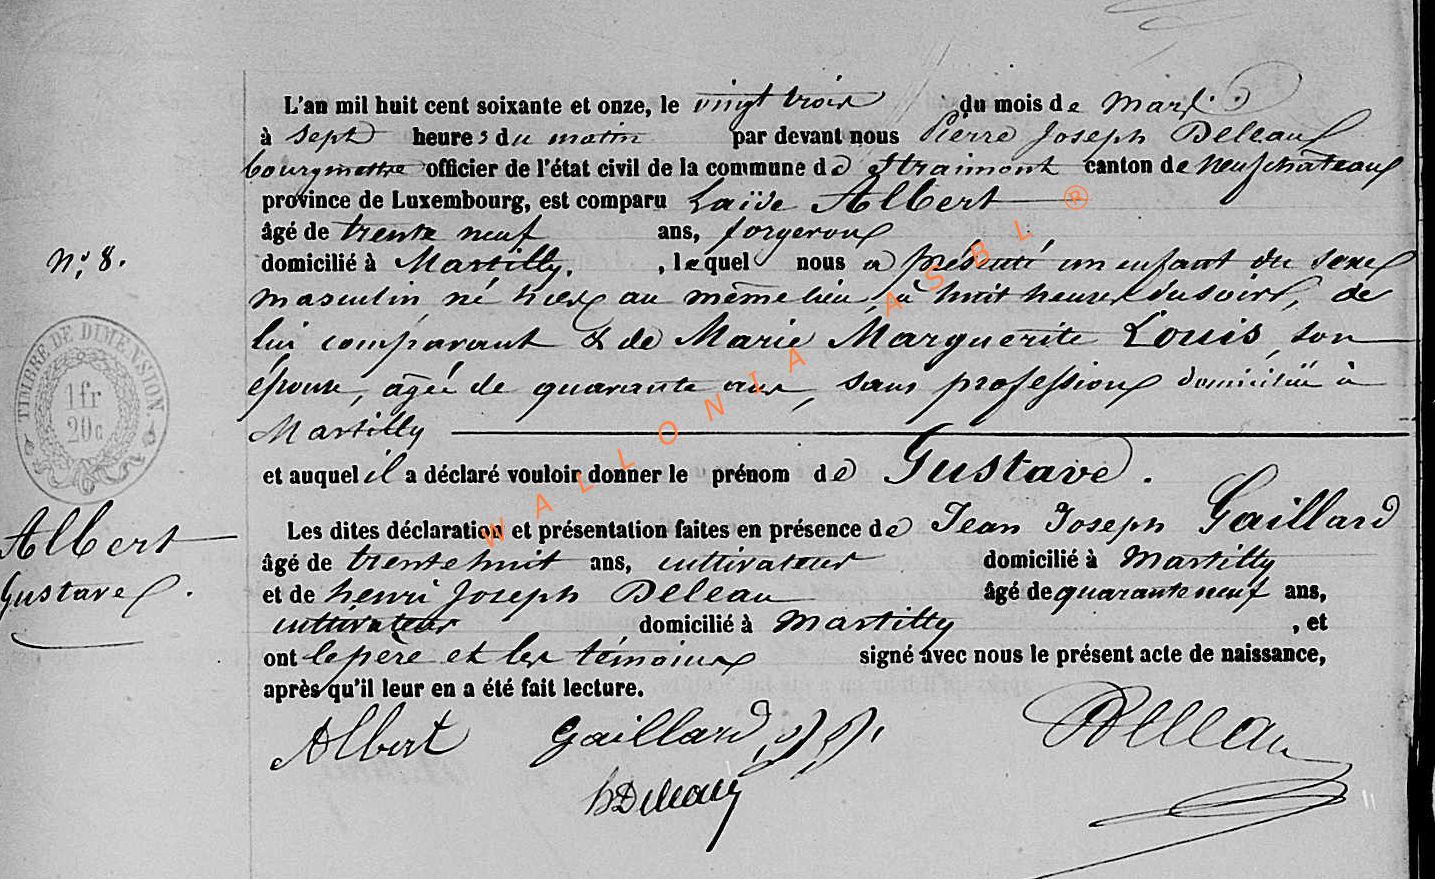 L'an mil huit cent soixante et onze, le vingt trois du mois de Mars.
à sept heures du matin par devant nous Pierre Joseph Deleau
bourgmestre officier de l'état civil de la commune de Straimont canton de Neufchâteau
province de Luxembourg, est comparu Laïde Albert
âgé de trente neuf ans, forgeron
N° 8.
domicilié à Martilly, , lequel nous a présenté un enfant du sexe
masculin, né hier au même lieu, à huit heures du soir, de
lui comparant & de Marie Marguerite Louis, son
épouse, agée de quarante ans, sans profession domiciliée à
Martilly
TIMBRE DE DIMENSION
1 fr
20 c
et auquel il a déclaré vouloir donner le prénom de Gustave.
Les dites déclaration et présentation faites en présence de Jean Joseph Gaillard
Albert
Gustave.
âgé de trente huit ans, cultivateur domicilié à Martilly
et de henri Joseph Deleau âgé de quarante neuf ans,
cultivateur domicilié à Martilly , et
ont le père et les témoins signé avec nous le présent acte de naissance,
après qu'il leur en a été fait lecture.
Albert Gaillard, J. J. Deleau
h Deleau
WALLONIA ASBL ®